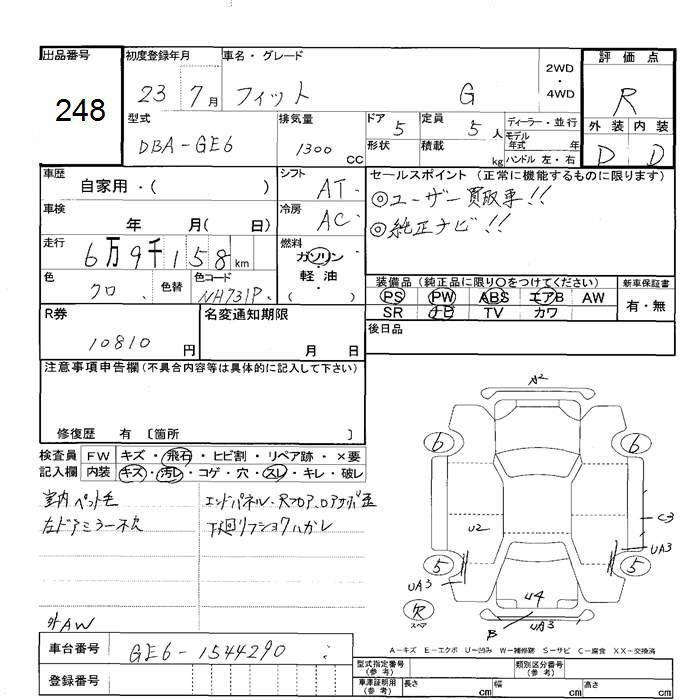 出品番号
248
初度登録年月
23 7月
車名・グレード
フィット G
2WD
・
4WD
評価点
R
外装 内装
D D
型式
DBA-GE6
排気量
1300 CC
ドア 5
形状
定員 5 人
積載 kg
ディーラー・並行
モデル年式 年
ハンドル 左・右
車歴
自家用・( )
シフト AT
冷房 AC
車検
年 月( 日)
走行
6万9千158km
燃料
ガソリン
・
軽油
( )
色
クロ
色替
色コード
NH731P
セールスポイント(正常に機能するものに限ります)
◎ユーザー買取車!!
◎純正ナビ!!
装備品(純正品に限り○をつけてください)
PS PW ABS エアB AW
SR ナビ TV カワ
新車保証書
有・無
後日品
R券
10810 円
名変通知期限
月 日
注意事項申告欄(不具合内容等は具体的に記入して下さい)
修復歴 有 〔箇所 〕
検査員記入欄
FW キズ・飛石・ヒビ割・リペア跡・×要
内装 キズ・汚レ・コゲ・穴・スレ・キレ・破レ
室内ペット毛
左ドアミラー不欠
エンドパネル・Rフロア、ロアサポ歪
下廻リフショクハガレ
外AW
車台番号
GE6-1544290
登録番号
A2
6 6
U2
C3
UA3
5 5
UA3
U4
欠
スペア
B UA3
A-キズ E-エクボ U-凹み W-補修跡 S-サビ C-腐食 XX-交換済
型式指定番号(参考)
類別区分番号(参考)
車庫証明用(参考)
長さ cm
幅 cm
高さ cm